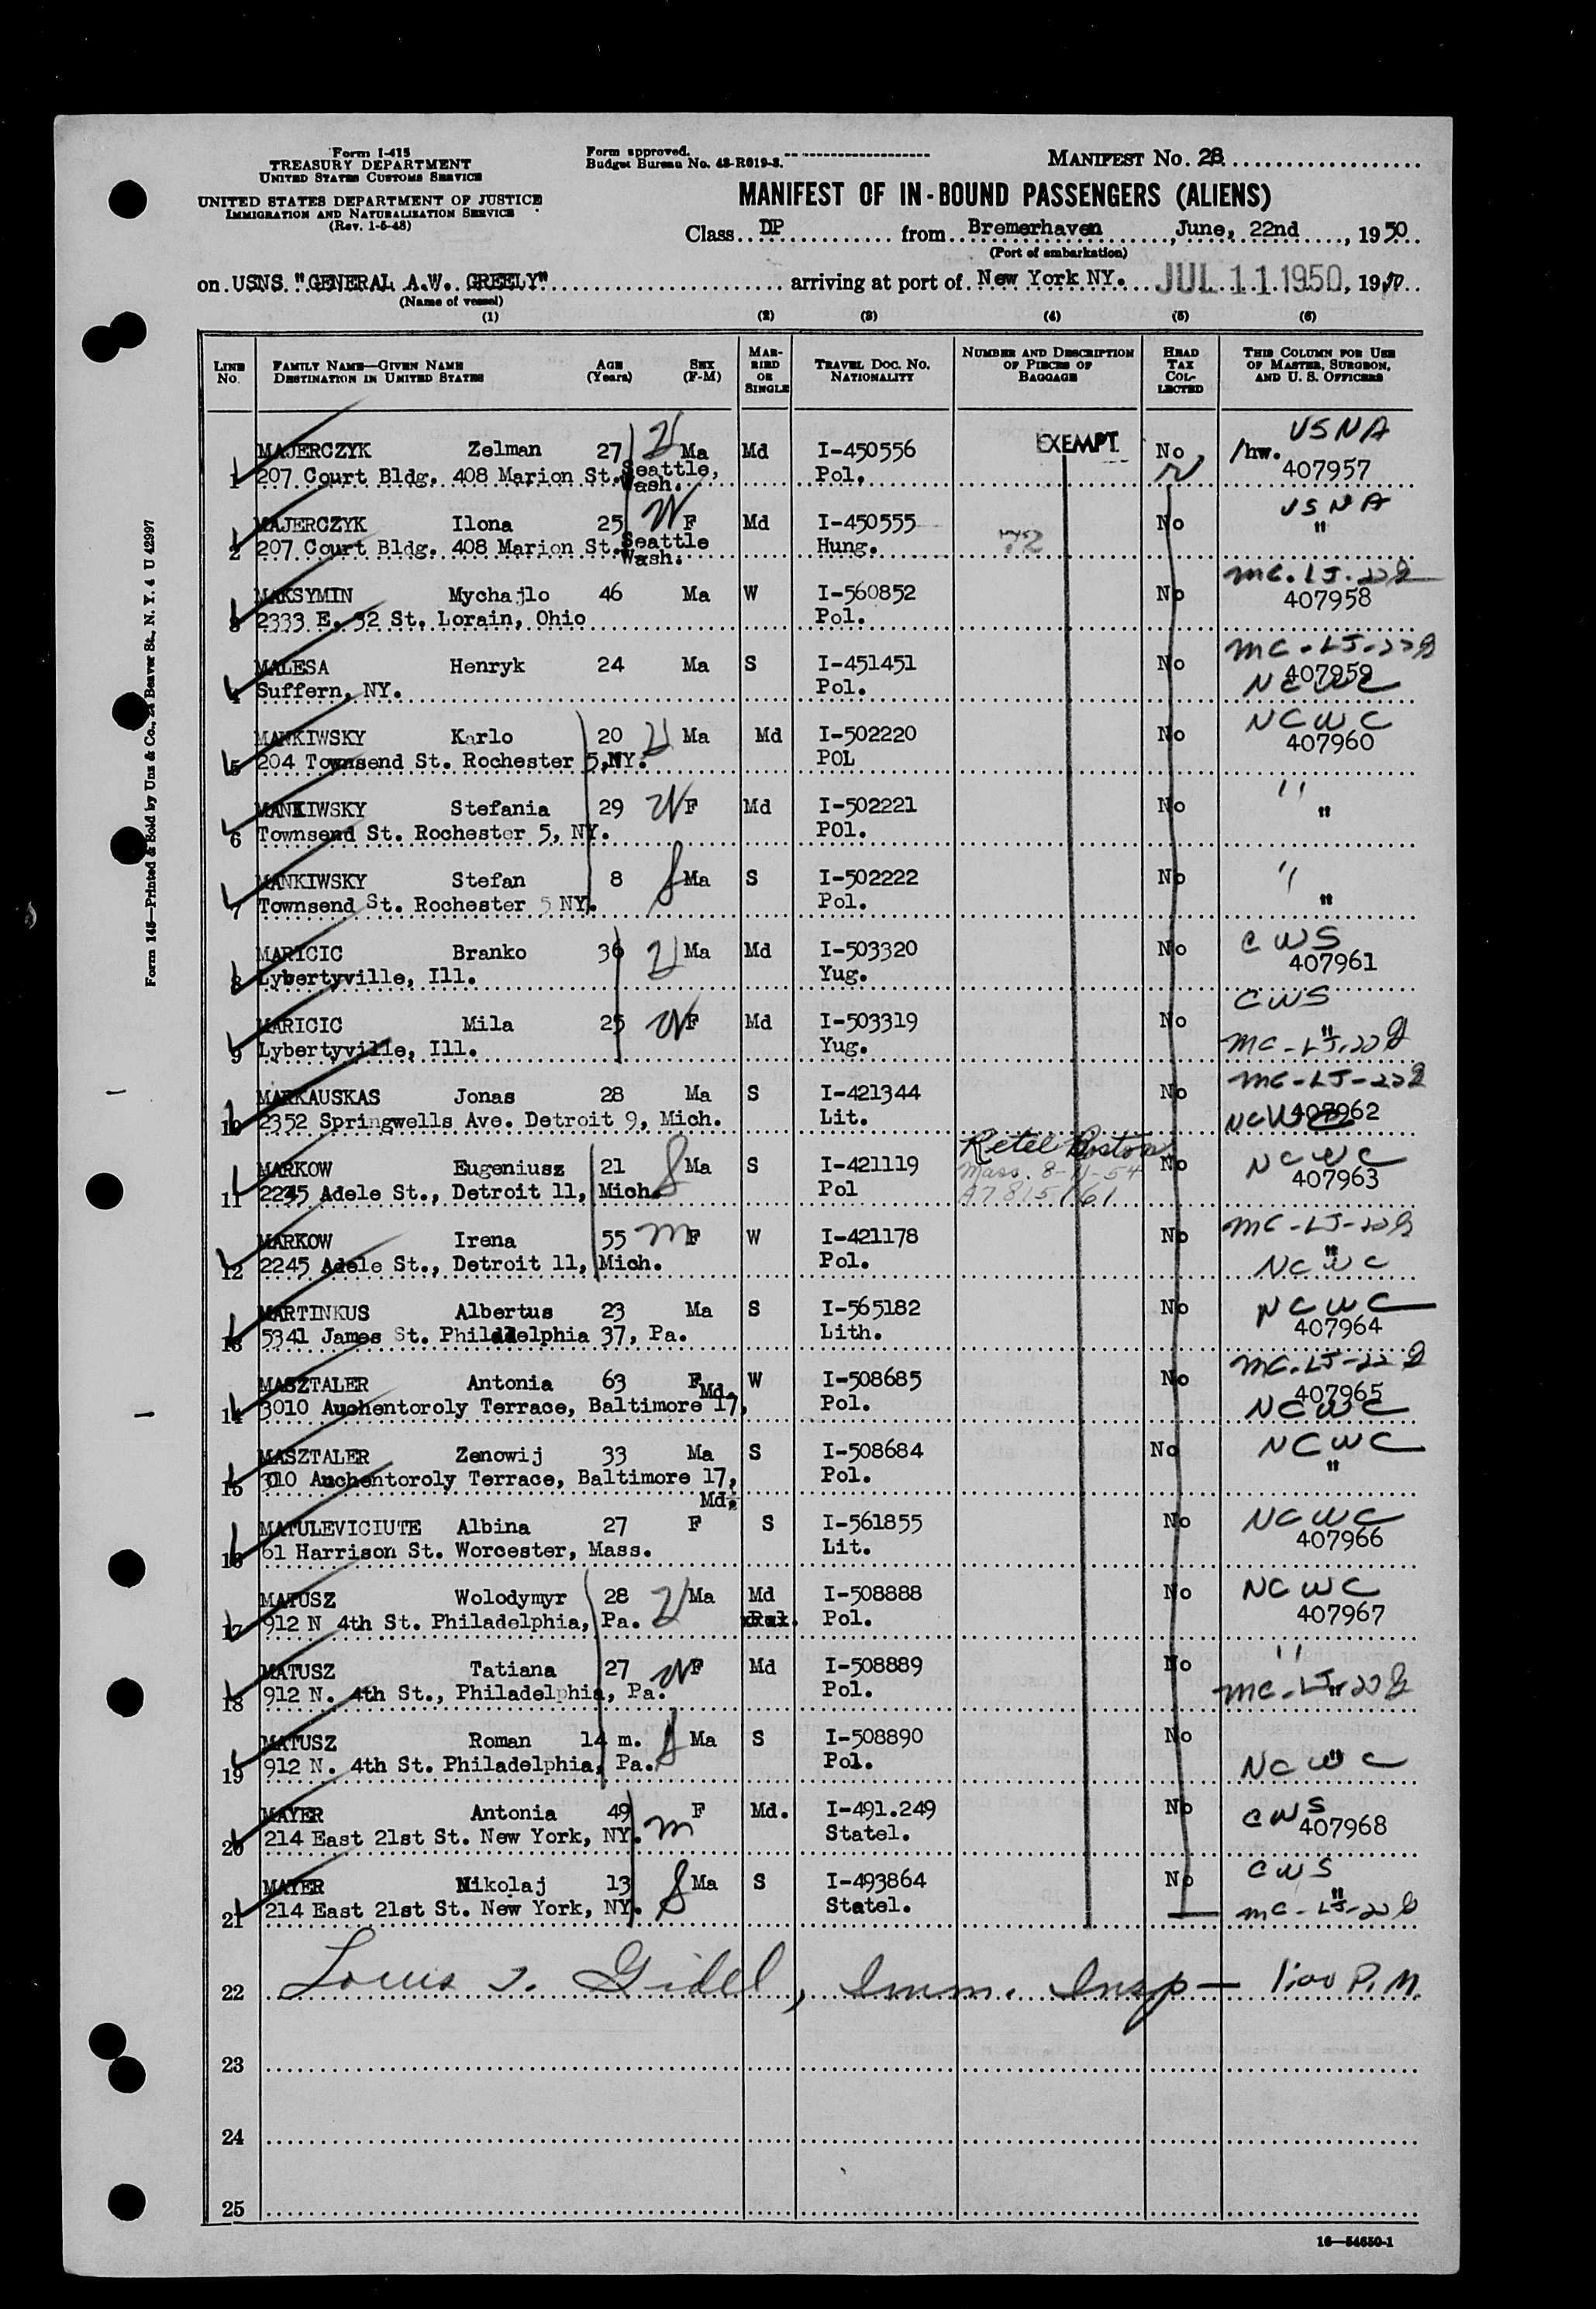 Form I-415
TREASURY DEPARTMENT
UNITED STATES CUSTOMS SERVICE
UNITED STATES DEPARTMENT OF JUSTICE
IMMIGRATION AND NATURALIZATION SERVICE
(Rev. 1-5-48)
Form approved.
Budget Bureau No. 43-R019-3.
MANIFEST No. 28
MANIFEST OF IN-BOUND PASSENGERS (ALIENS)
Class DP from Bremerhaven, June, 22nd, 1950
(Port of embarkation)
on USNS "GENERAL A.W. GREELY" arriving at port of New York NY. JUL 11 1950, 1950
(Name of vessel)
(1) (2) (3) (4) (5) (6)
LINE No. FAMILY NAME—GIVEN NAME DESTINATION IN UNITED STATES AGE (Years) SEX (F-M) MARRIED OR SINGLE TRAVEL DOC. NO. NATIONALITY NUMBER AND DESCRIPTION OF PIECES OF BAGGAGE HEAD TAX COLLECTED THIS COLUMN FOR USE OF MASTER, SURGEON, AND U. S. OFFICERS
USNA
MAJERCZYK Zelman 27 Ma Md I-450556 EXEMPT No /hw. 407957
1 207 Court Bldg. 408 Marion St. Seattle, Wash. Pol.
USNA
MAJERCZYK Ilona 25 F Md I-450555 No "
2 207 Court Bldg. 408 Marion St. Seattle Wash. Hung.
MC-LJ-22
MAKSYMIN Mychajlo 46 Ma W I-560852 No 407958
3 2333 E. 32 St. Lorain, Ohio Pol.
MC-LJ-22
MALESA Henryk 24 Ma S I-451451 No 407959
4 Suffern, NY. Pol. NCWC
NCWC
MANKIWSKY Karlo 20 Ma Md I-502220 No 407960
5 204 Townsend St. Rochester 5, NY. POL
MANKIWSKY Stefania 29 F Md I-502221 No " "
6 Townsend St. Rochester 5, NY. POl.
MANKIWSKY Stefan 8 S Ma S I-502222 No " "
7 Townsend St. Rochester 5 NY. Pol.
CWS
MARICIC Branko 36 Ma Md I-503320 No 407961
8 Lybertyville, Ill. Yug.
CWS
MARICIC Mila 25 F Md I-503319 No "
9 Lybertyville, Ill. Yug. MC-LJ-22
MC-LJ-22
MARKAUSKAS Jonas 28 Ma S I-421344 No 407962
10 2352 Springwells Ave. Detroit 9, Mich. Lit. NCWC
Retel Boston
MARKOW Eugeniusz 21 S Ma S I-421119 Mass. 8-11-54 No NCWC 407963
11 2245 Adele St., Detroit 11, Mich. Pol A7815161
MARKOW Irena 55 m F W I-421178 No MC-LJ-22 "
12 2245 Adele St., Detroit 11, Mich. Pol. NCWC
MARTINKUS Albertus 23 Ma S I-565182 No NCWC 407964
13 5341 James St. Philadelphia 37, Pa. Lith.
MC-LJ-22
MASZTALER Antonia 63 F W I-508685 No 407965
14 3010 Auchentoroly Terrace, Baltimore 17, Md. Pol. NCWC
MASZTALER Zenowij 33 Ma S I-508684 No NCWC "
15 310 Auchentoroly Terrace, Baltimore 17, Md. Pol.
MATULEVICIUTE Albina 27 F S I-561855 No NCWC 407966
16 61 Harrison St. Worcester, Mass. Lit.
MATUSZ Wolodymyr 28 Ma Md I-508888 No NCWC 407967
17 912 N 4th St. Philadelphia, Pa. Pol.
MATUSZ Tatiana 27 F Md I-508889 No " "
18 912 N. 4th St., Philadelphia, Pa. Pol. MC-LJ-22
MATUSZ Roman 14 m. S Ma S I-508890 No "
19 912 N. 4th St. Philadelphia, Pa. Pol. NCWC
MAYER Antonia 49 m F Md. I-491.249 No CWS 407968
20 214 East 21st St. New York, NY. Statel.
MAYER Nikolaj 13 S Ma S I-493864 No CWS "
21 214 East 21st St. New York, NY. Statel. MC-LJ-22
22 Louis J. Gidel, Imm. Insp — 1:00 P.M.
23
24
25
16—54650-1
Form 145—Printed & Sold by Unz & Co., 24 Beaver St., N. Y. 4 U 42997